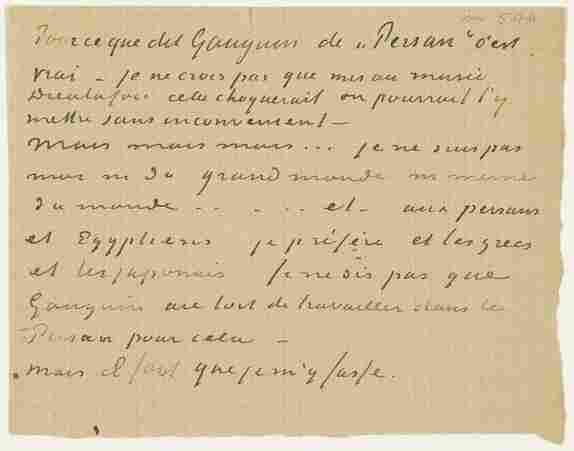 Pour ce que dit Gauguin de „Persan" c'est
vrai – je ne crois pas que mis au musée
Dieulafoi cela choquerait on pourrait l'y
mettre sans inconvenient –
Mais mais mais... je ne suis pas
moi ni du grand monde ni meme
du monde . . . . . et – aux persans
et Egyptiens je préfère et les grecs
et les japonais Je ne dis pas que
Gauguin aie tort de travailler dans le
Persan pour cela –
mais il faut que je m'y fasse.